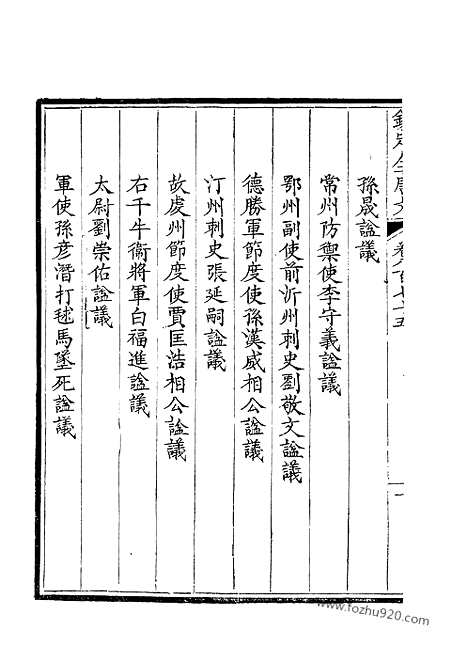 欽定全唐文 卷八百七十五 一
孫晟諡議
常州防禦使李守義諡議
鄂州副使前沂州刺史劉敬文諡議
德勝軍節度使孫漢威相公諡議
汀州刺史張延嗣諡議
故虔州節度使賈匡浩相公諡議
右千牛衛將軍白福進諡議
太尉劉崇佑諡議
軍使孫彥潛打毬馬墜死諡議
www.fozhu920.com